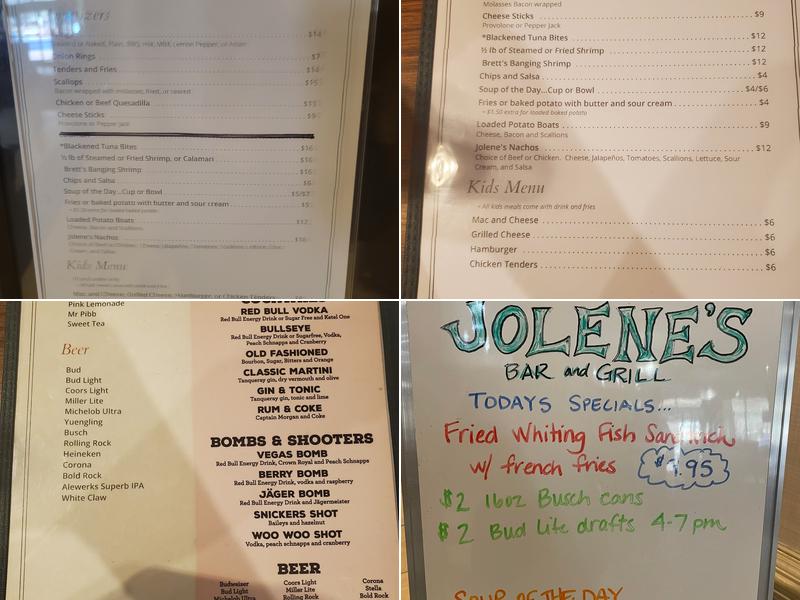 $14
Onion Rings $7
Tenders and Fries $14
Scallops $15
Bacon wrapped with molasses, fried, or seared
Chicken or Beef Quesadilla
Cheese Sticks $9
Provolone or Pepper Jack
*Blackened Tuna Bites $16
½ lb of Steamed or Fried Shrimp, or Calamari $16
Brett's Banging Shrimp $16
Chips and Salsa $6
Soup of the Day...Cup or Bowl $5/$7
Fries or baked potato with butter and sour cream $5
Loaded Potato Boats $12
Cheese, Bacon and Scallions
Jolene's Nachos
Kids Menu
Molasses Bacon wrapped
Cheese Sticks $9
Provolone or Pepper Jack
*Blackened Tuna Bites $12
½ lb of Steamed or Fried Shrimp $12
Brett's Banging Shrimp $12
Chips and Salsa $4
Soup of the Day...Cup or Bowl $4/$6
Fries or baked potato with butter and sour cream $4
+ $1.50 extra for loaded baked potato
Loaded Potato Boats $9
Cheese, Bacon and Scallions
Jolene's Nachos $12
Choice of Beef or Chicken. Cheese, Jalapeños, Tomatoes, Scallions, Lettuce, Sour
Cream, and Salsa
Kids Menu
• All kids meals come with drink and fries
Mac and Cheese $6
Grilled Cheese $6
Hamburger $6
Chicken Tenders $6
Pink Lemonade
Mr Pibb
Sweet Tea
Beer
Bud
Bud Light
Coors Light
Miller Lite
Michelob Ultra
Yuengling
Busch
Rolling Rock
Heineken
Corona
Bold Rock
Alewerks Superb IPA
White Claw
RED BULL VODKA
Red Bull Energy Drink or Sugar Free and Ketel One
BULLSEYE
Red Bull Energy Drink or Sugarfree, Vodka,
Peach Schnapps and Cranberry
OLD FASHIONED
Bourbon, Sugar, Bitters and Orange
CLASSIC MARTINI
Tanqueray gin, dry vermouth and olive
GIN & TONIC
Tanqueray gin, tonic and lime
RUM & COKE
Captain Morgan and Coke
BOMBS & SHOOTERS
VEGAS BOMB
Red Bull Energy Drink, Crown Royal and Peach Schnapps
BERRY BOMB
Red Bull Energy Drink, vodka and raspberry
JÄGER BOMB
Red Bull Energy Drink and Jägermeister
SNICKERS SHOT
Baileys and hazelnut
WOO WOO SHOT
Vodka, peach schnapps and cranberry
BEER
Budweiser Coors Light Corona
Bud Light Miller Lite Stella
Michelob Ultra Rolling Rock Bold Rock
JOLENE'S
BAR and GRILL
TODAYS SPECIALS...
Fried Whiting Fish Sandwich
w/ french fries .95
$2 16oz Busch cans
$2 Bud Lite drafts 4-7pm
SOUP OF THE DAY